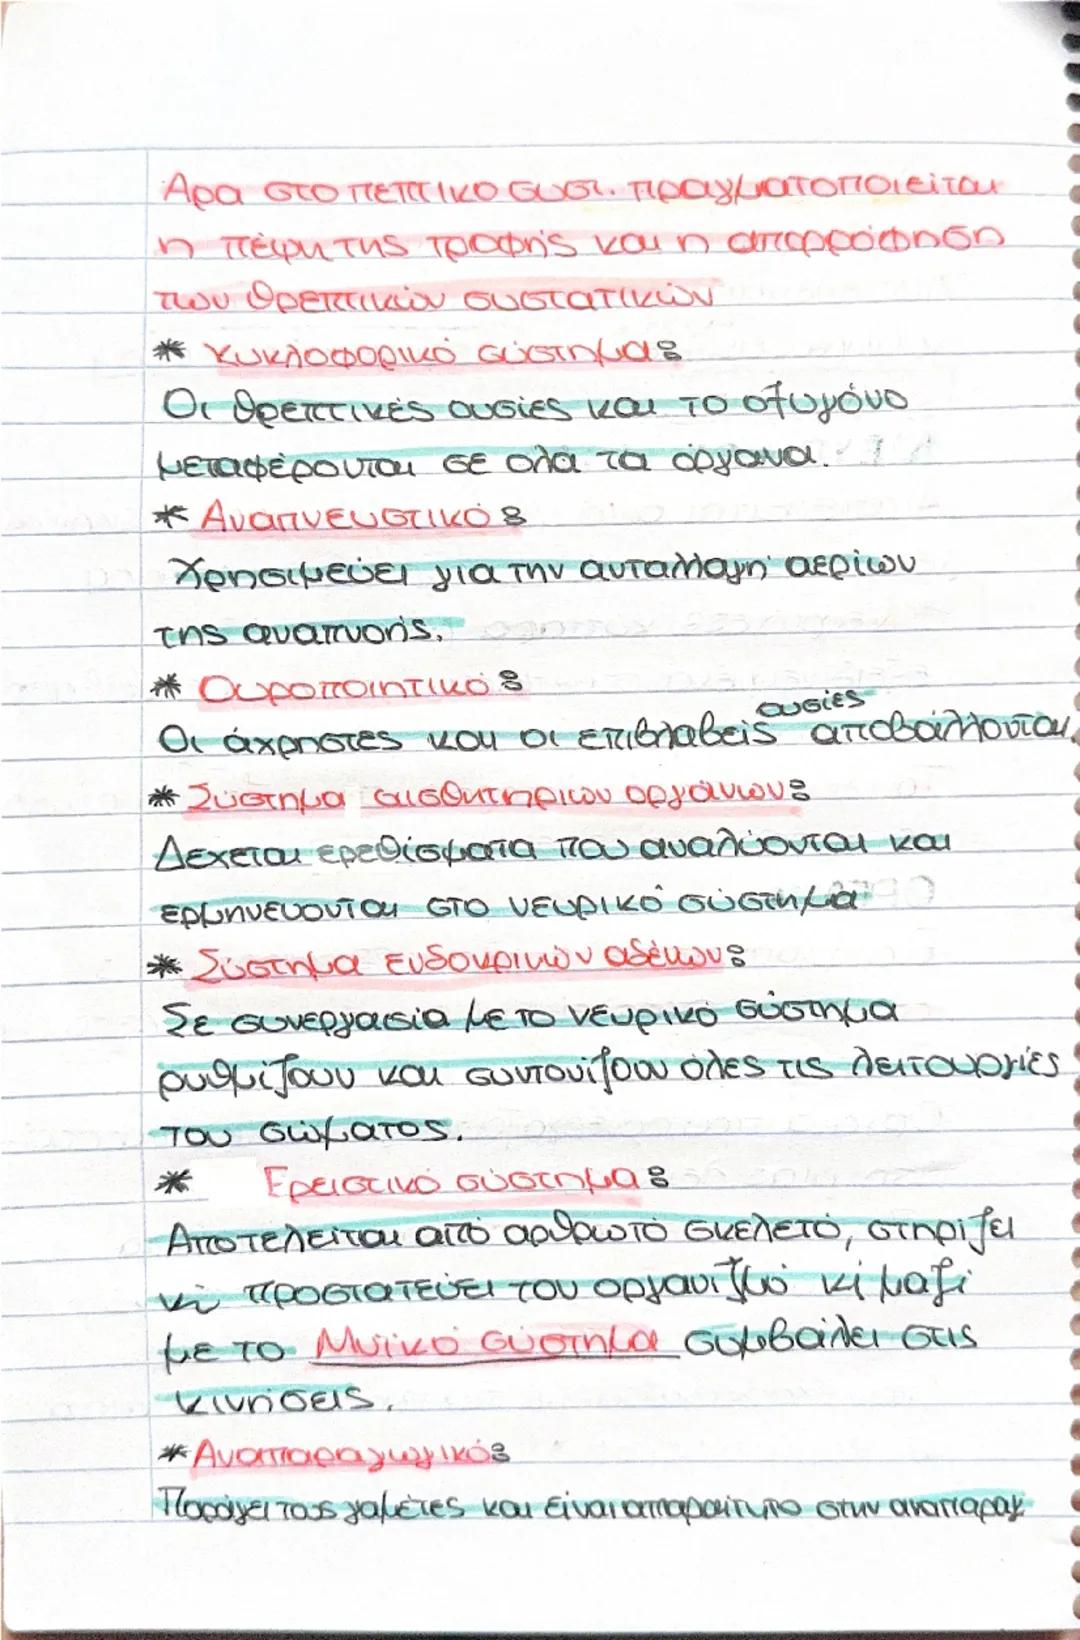 Αρα στο πεπτικο συστ. πραγματοποιείται
η πέψη της τροφής και η απορρόφηση
των θρεπτικών συστατικών
* Κυκλοφορικό σύστημα:
Οι θρεπτικές ουσίες και το οξυγόνο
μεταφέρονται σε ολα τα όργανα.
* Αναπνευστικό:
Χρησιμεύει για την ανταλλαγή αερίων
της αναπνοής.
* Ουροποιητικό:
Οι άχρηστες και οι επιβλαβείς ουσίες αποβάλλονται.
* Σύστημα αισθητηριων οργάνων:
Δεχεται ερεθίσματα που αναλύονται και
ερμηνευονται στο νευρικό σύστημα
* Σύστημα ενδοκρινών αδένων:
Σε συνεργασία με το νευρικό σύστημα
ρυθμίζουν και συντονίζουν όλες τις λειτουργίες
του σώματος.
* Ερειστικό σύστημα:
Αποτελείται από αρθρωτό σκελετό, στηρίζει
κι προστατεύει τον οργανιζμό κι μαζί
με το Μυϊκό σύστημα συμβάλλει στις
κινήσεις.
* Αναπαραγωγικό:
Παράγει τους γαμέτες και είναι απαραίτητο στην αναπαραγ